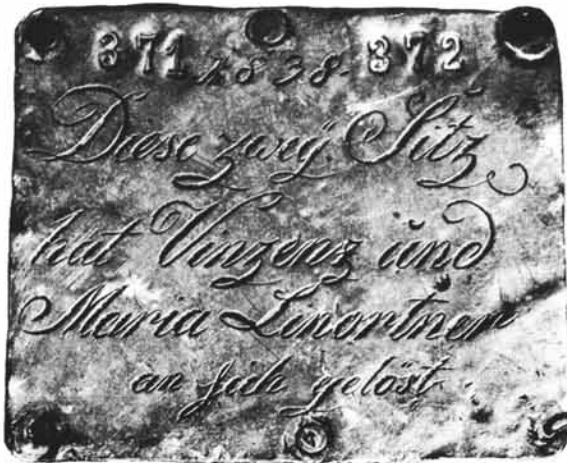 371 1838. 372
Diese zweÿ Sitz
hat Vinzenz und
Maria Linortner
an sich gelöst